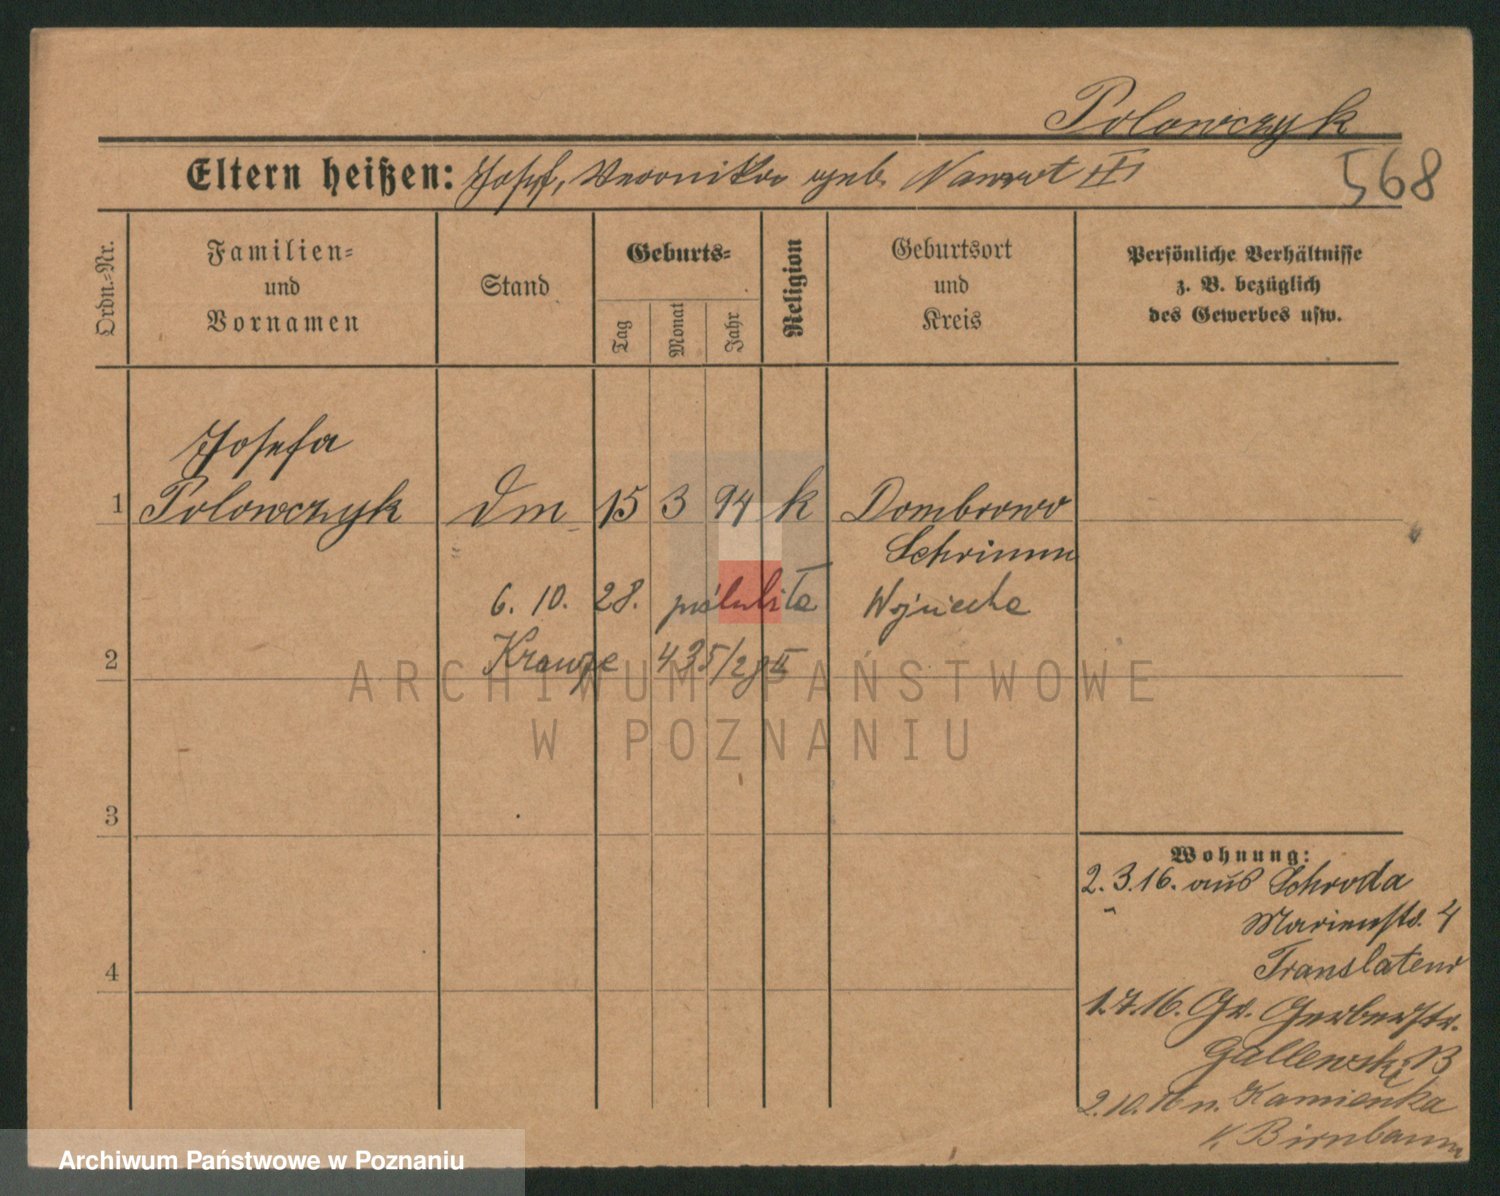 Polowczyk
Eltern heißen: Josef, Veronika geb. Nawrot III
568
Ordn.-Nr.
Familien-
und
Vornamen
Stand
Geburts-
Tag
Monat
Jahr
Religion
Geburtsort
und
Kreis
Persönliche Verhältnisse
z. B. bezüglich
des Gewerbes usw.
Josefa
1 Polowczyk Dm 15 3 94 k Dombrowo
Schrimm
6. 10. 28. poślubiła Wojciecha
2 Krauze 435/28 II
3
4
Wohnung:
2.3.16. aus Schroda
Marienstr. 4
Translateur
1.7.16. Gr. Gerberstr.
Gallewski
2.10.16 n. Kamionka
Kr. Birnbaum
ARCHIWUM PAŃSTWOWE
W POZNANIU
Archiwum Państwowe w Poznaniu